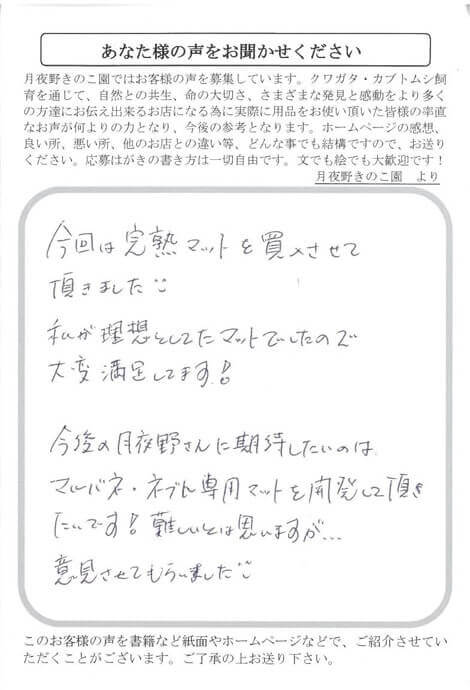 あなた様の声をお聞かせください
月夜野きのこ園ではお客様の声を募集しています。クワガタ・カブトムシ飼
育を通じて、自然との共生、命の大切さ、さまざまな発見と感動をより多く
の方達にお伝え出来るお店になる為に実際に用品をお使い頂いた皆様の率直
なお声が何よりの力となり、今後の参考となります。ホームページの感想、
良い所、悪い所、他のお店との違い等、どんな事でも結構ですので、お送り
ください。応募はがきの書き方は一切自由です。文でも絵でも大歓迎です!
月夜野きのこ園 より
今回は完熟マットを買入させて
頂きました
私が理想としてたマットでしたので
大変満足してます!
今後の月夜野さんに期待したいのは
マルバネ・ネブト専用マットを開発して頂き
たいです!難しいとは思いますが...
意見させてもらいました
このお客様の声を書籍など紙面やホームページなどで、ご紹介させてい
ただくことがございます。ご了承の上お送り下さい。